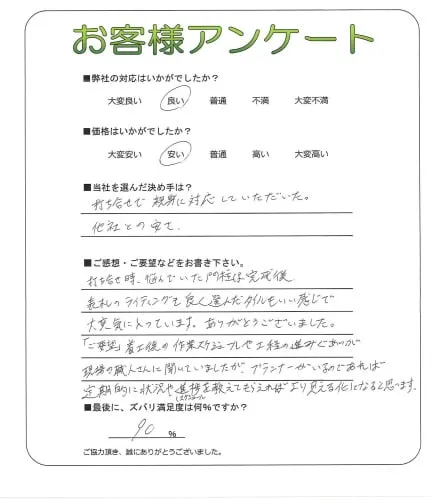 お客様アンケート
■弊社の対応はいかがでしたか？
大変良い 良い 普通 不満 大変不満
■価格はいかがでしたか？
大変安い 安い 普通 高い 大変高い
■当社を選んだ決め手は？
打ち合せで親身に対応していただいた。
他社との安さ.
■ご感想・ご要望などをお書き下さい。
打ち合せ時、悩んでいた門柱は完成後
表札のライティングも良く選んだタイルもいい感じで
大変気に入っています。ありがとうございました。
「ご要望」着工後の作業スケジュールや工程の進み具合が
現場の職人さんに聞いていましたが、プランナーがいるのであれば
定期的に状況や進捗を教えてもらえればより見える化になると思います。
(スケジュール
■最後に、ズバリ満足度は何％ですか？
90 %
ご協力頂き、誠にありがとうございました。